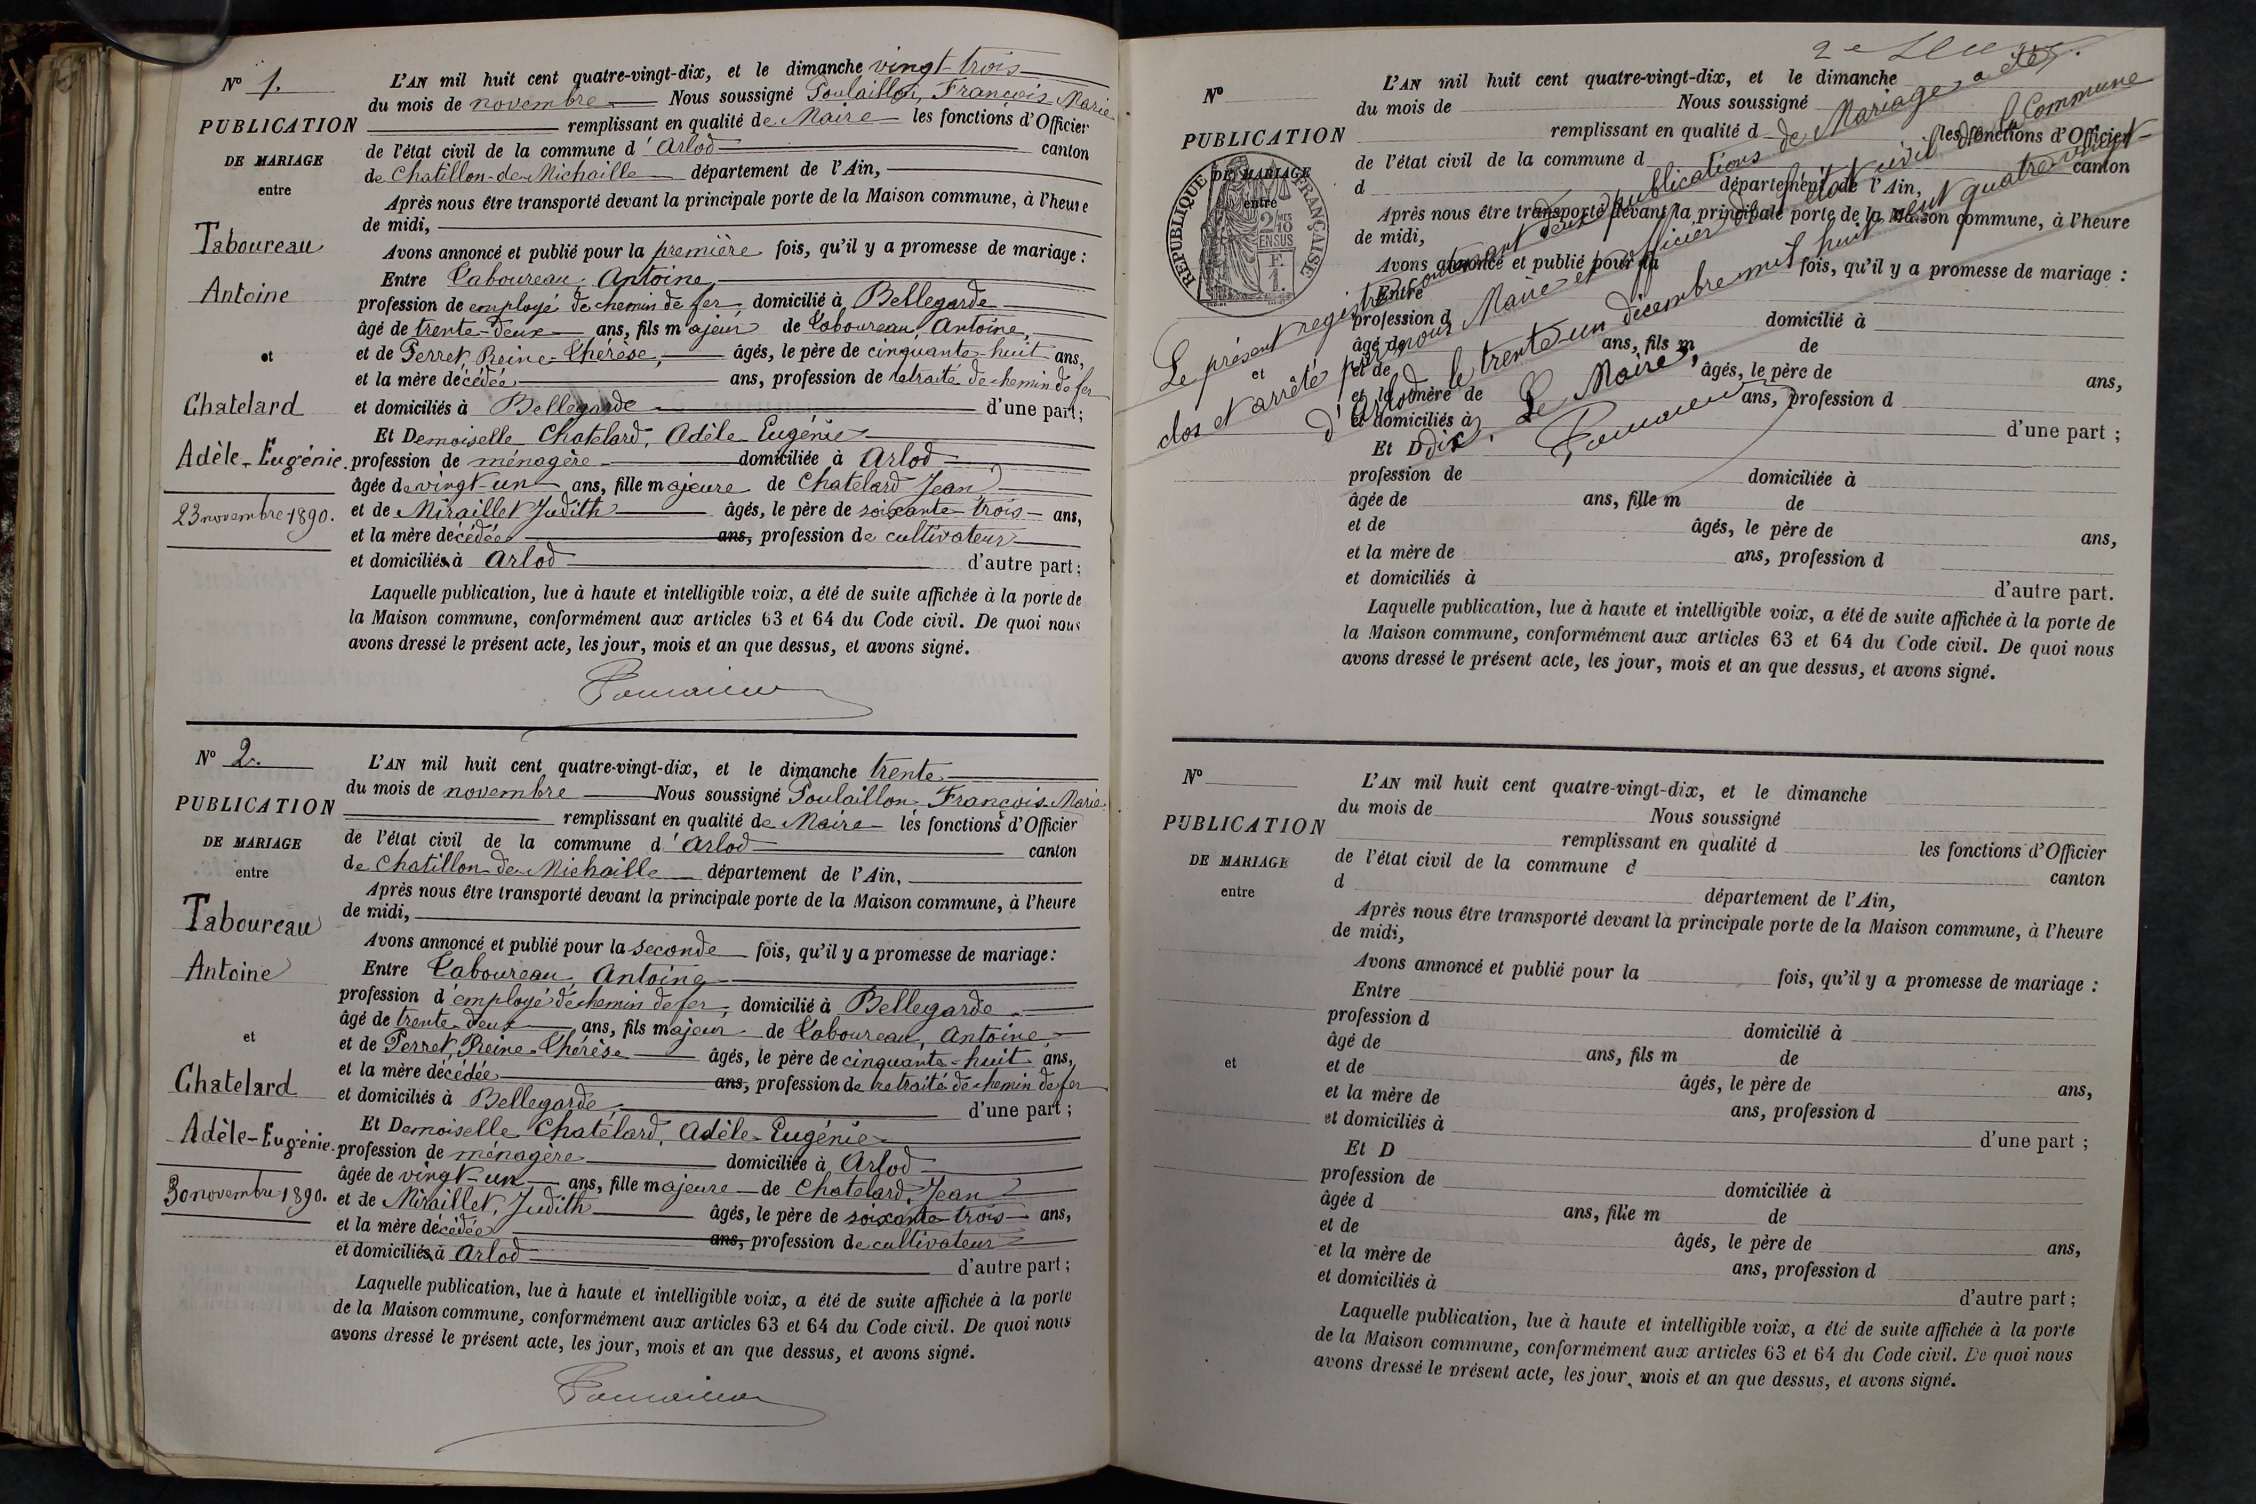 N° 1.
PUBLICATION
DE MARIAGE
entre
Taboureau
Antoine
et
Chatelard
Adèle-Eugénie.
23 novembre 1890.
L'AN mil huit cent quatre-vingt-dix, et le dimanche vingt-trois
du mois de novembre Nous soussigné Poulaillon, François-Marie
remplissant en qualité de Maire les fonctions d'Officier
de l'état civil de la commune d'Arlod canton
de Chatillon-de-Michaille département de l'Ain,
Après nous être transporté devant la principale porte de la Maison commune, à l'heure
de midi,
Avons annoncé et publié pour la première fois, qu'il y a promesse de mariage :
Entre Taboureau, Antoine
profession de employé de chemin de fer, domicilié à Bellegarde
âgé de trente-deux ans, fils majeur de Taboureau, Antoine,
et de Perret, Reine-Thérèse, âgés, le père de cinquante-huit ans,
et la mère décédée ans, profession de retraité de chemin de fer
et domiciliés à Bellegarde d'une part;
Et Demoiselle Chatelard, Adèle-Eugénie
profession de ménagère domiciliée à Arlod
âgée de vingt-un ans, fille majeure de Chatelard Jean
et de Miraillet Judith âgés, le père de soixante-trois ans,
et la mère décédée ans, profession de cultivateur
et domiciliés à Arlod d'autre part;
Laquelle publication, lue à haute et intelligible voix, a été de suite affichée à la porte de
la Maison commune, conformément aux articles 63 et 64 du Code civil. De quoi nous
avons dressé le présent acte, les jour, mois et an que dessus, et avons signé.
N° 2.
PUBLICATION
DE MARIAGE
entre
Taboureau
Antoine
et
Chatelard
Adèle-Eugénie.
30 novembre 1890.
L'AN mil huit cent quatre-vingt-dix, et le dimanche trente
du mois de novembre Nous soussigné Poulaillon François-Marie
remplissant en qualité de Maire les fonctions d'Officier
de l'état civil de la commune d'Arlod canton
de Chatillon-de-Michaille département de l'Ain,
Après nous être transporté devant la principale porte de la Maison commune, à l'heure
de midi,
Avons annoncé et publié pour la seconde fois, qu'il y a promesse de mariage:
Entre Taboureau, Antoine
profession d'employé de chemin de fer, domicilié à Bellegarde
âgé de trente-deux ans, fils majeur de Taboureau, Antoine
et de Perret, Reine-Thérèse âgés, le père de cinquante-huit ans,
et la mère décédée ans, profession de retraité de chemin de fer
et domiciliés à Bellegarde d'une part;
Et Demoiselle Chatelard, Adèle-Eugénie
profession de ménagère domiciliée à Arlod
âgée de vingt-un ans, fille majeure de Chatelard, Jean
et de Miraillet, Judith âgés, le père de soixante-trois ans,
et la mère décédée ans, profession de cultivateur
et domiciliés à Arlod d'autre part;
Laquelle publication, lue à haute et intelligible voix, a été de suite affichée à la porte
de la Maison commune, conformément aux articles 63 et 64 du Code civil. De quoi nous
avons dressé le présent acte, les jour, mois et an que dessus, et avons signé.
N°
PUBLICATION
DE MARIAGE
entre
et
RÉPUBLIQUE FRANÇAISE
2/10 EN SUS
F. 1.
L'AN mil huit cent quatre-vingt-dix, et le dimanche
du mois de Nous soussigné
remplissant en qualité d les fonctions d'Officier
de l'état civil de la commune d canton
d département de l'Ain,
Après nous être transporté devant la principale porte de la Maison commune, à l'heure
de midi,
Avons annoncé et publié pour la fois, qu'il y a promesse de mariage :
Entre
profession d domicilié à
âgé de ans, fils m de
et de âgés, le père de ans,
et la mère de ans, profession d
et domiciliés à d'une part ;
Et D
profession de domiciliée à
âgée de ans, fille m de
et de âgés, le père de ans,
et la mère de ans, profession d
et domiciliés à d'autre part.
Laquelle publication, lue à haute et intelligible voix, a été de suite affichée à la porte de
la Maison commune, conformément aux articles 63 et 64 du Code civil. De quoi nous
avons dressé le présent acte, les jour, mois et an que dessus, et avons signé.
Le présent registre contenant deux publications de Mariage a été
clos et arrêté par nous Maire et officier de l'état civil de la Commune
d'Arlod le trente-un décembre mil huit cent quatre-vingt-
dix. Le Maire,
N°
PUBLICATION
DE MARIAGE
entre
et
L'AN mil huit cent quatre-vingt-dix, et le dimanche
du mois de Nous soussigné
remplissant en qualité d les fonctions d'Officier
de l'état civil de la commune d canton
d département de l'Ain,
Après nous être transporté devant la principale porte de la Maison commune, à l'heure
de midi,
Avons annoncé et publié pour la fois, qu'il y a promesse de mariage :
Entre
profession d domicilié à
âgé de ans, fils m de
et de âgés, le père de ans,
et la mère de ans, profession d
et domiciliés à d'une part ;
Et D
profession de domiciliée à
âgée d ans, fille m de
et de âgés, le père de ans,
et la mère de ans, profession d
et domiciliés à d'autre part ;
Laquelle publication, lue à haute et intelligible voix, a été de suite affichée à la porte
de la Maison commune, conformément aux articles 63 et 64 du Code civil. De quoi nous
avons dressé le présent acte, les jour, mois et an que dessus, et avons signé.